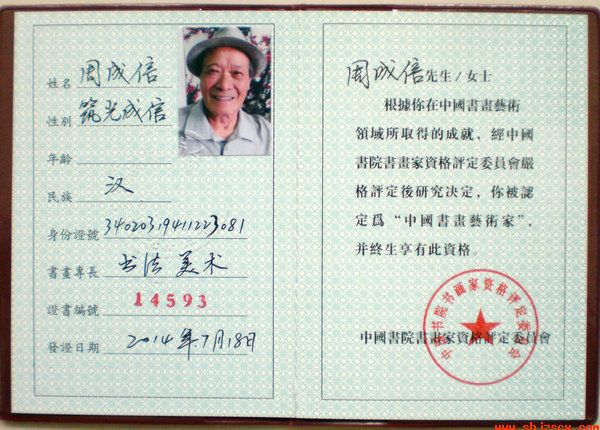 姓名 周成信
性别 筑光成信
年齡
民族 汉
身份證號 34020319411223081
書畫專長 书法 美术
證書編號 14593
發證日期 2014年7月18日
周成信先生/女士
根據你在中國書畫藝術
領域所取得的成就，經中國
書院書畫家資格評定委員會嚴
格評定後研究决定，你被認
定爲“中國書畫藝術家”，
并終生享有此資格。
中國書院書畫家資格評定委員會
中国书院书画家资格评定委员会